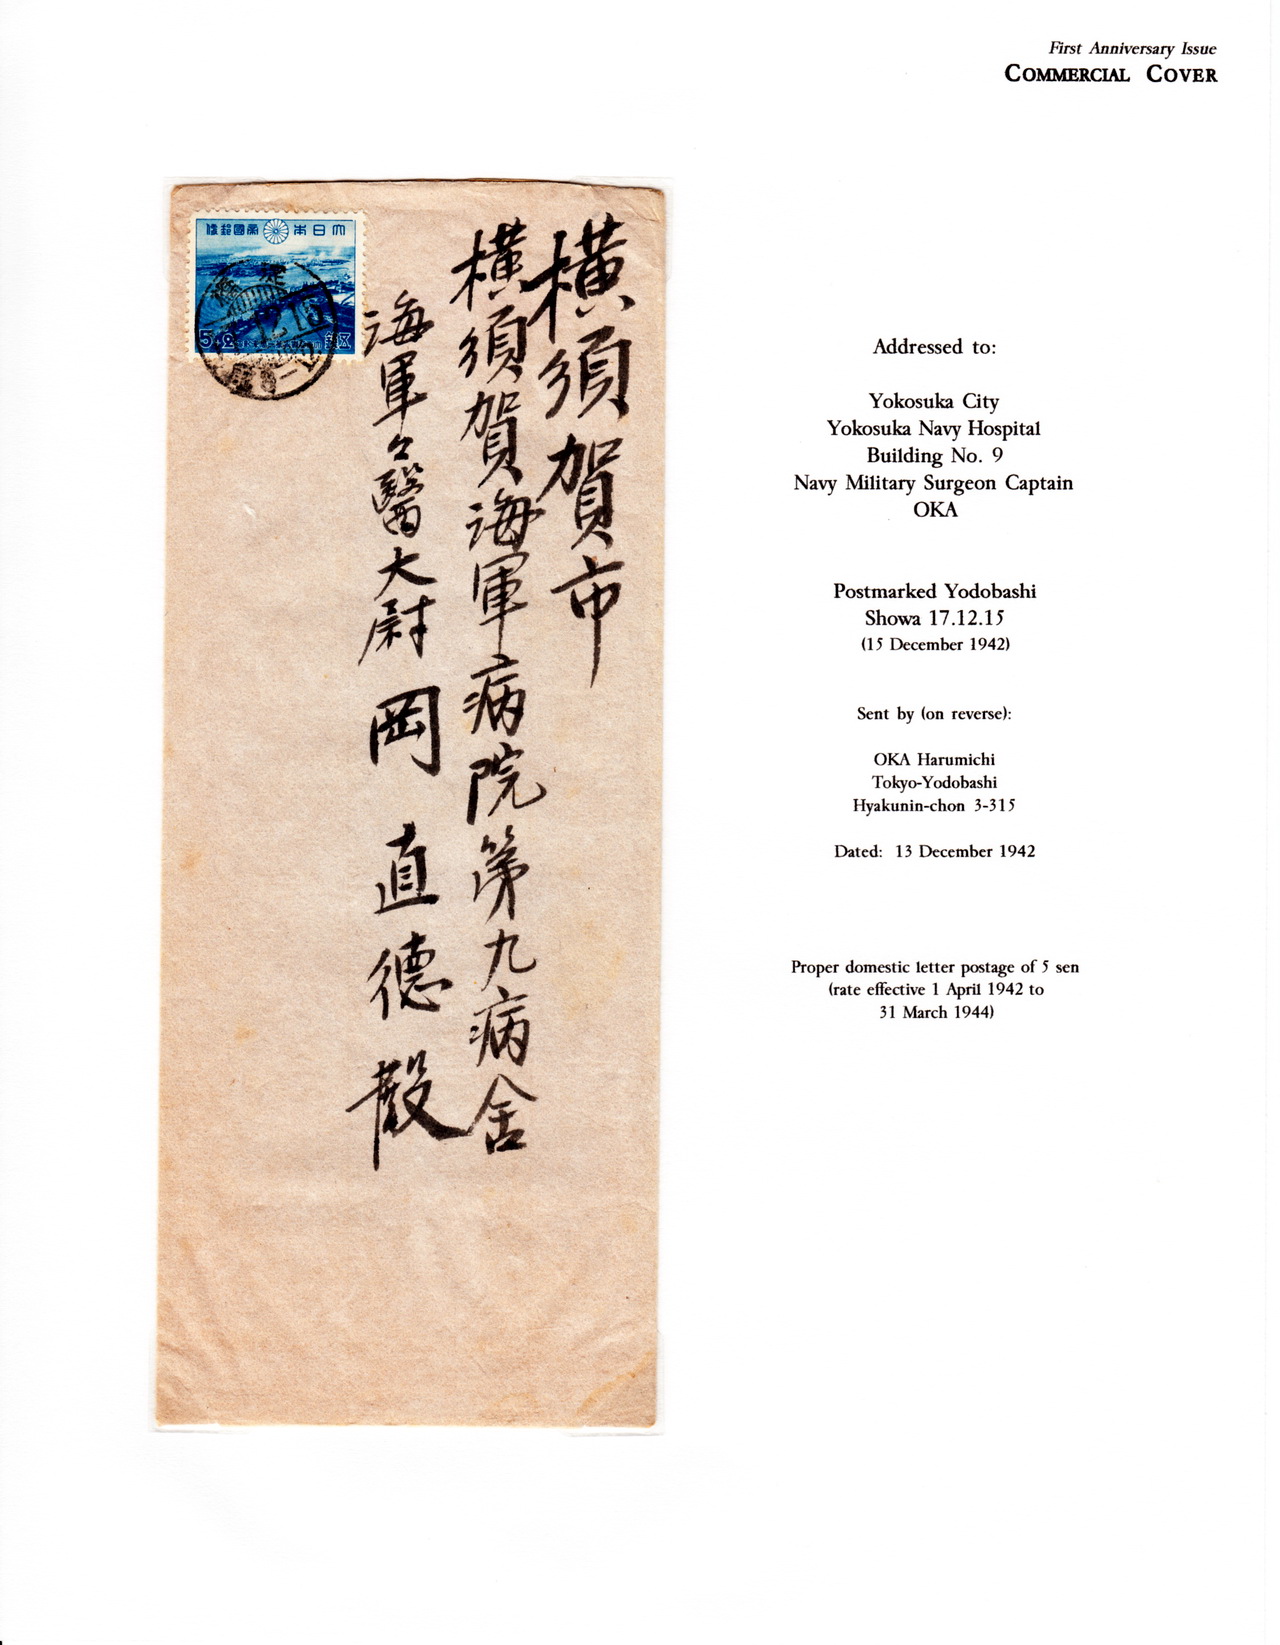 First Anniversary Issue
COMMERCIAL COVER
大日本帝國郵便
5+2
横須賀市
横須賀海軍病院第九病舎
海軍々醫大尉
岡 直德 殿
12.15
Addressed to:
Yokosuka City
Yokosuka Navy Hospital
Building No. 9
Navy Military Surgeon Captain
OKA
Postmarked Yodobashi
Showa 17.12.15
(15 December 1942)
Sent by (on reverse):
OKA Harumichi
Tokyo-Yodobashi
Hyakunin-chon 3-315
Dated: 13 December 1942
Proper domestic letter postage of 5 sen
(rate effective 1 April 1942 to
31 March 1944)